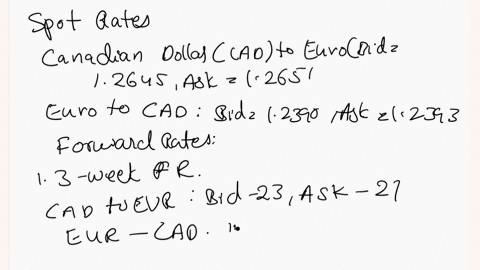 Spot Rates
Canadian Dollar (CAD) to Euro (Bid =
1.2645, Ask = 1.2651
Euro to CAD: Bid = 1.2390, Ask = 1.2393
Forward Rates:
1. 3-week FR.
CAD to EUR: Bid -23, ASK - 27
EUR - CAD.